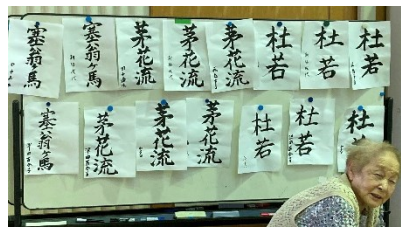 塞翁ヶ馬
塞翁ヶ馬
茅花流
茅花流
茅花流
杜若
杜若
杜若
塞翁ヶ馬
茅花流
茅花流
茅花流
杜若
杜若
杜若